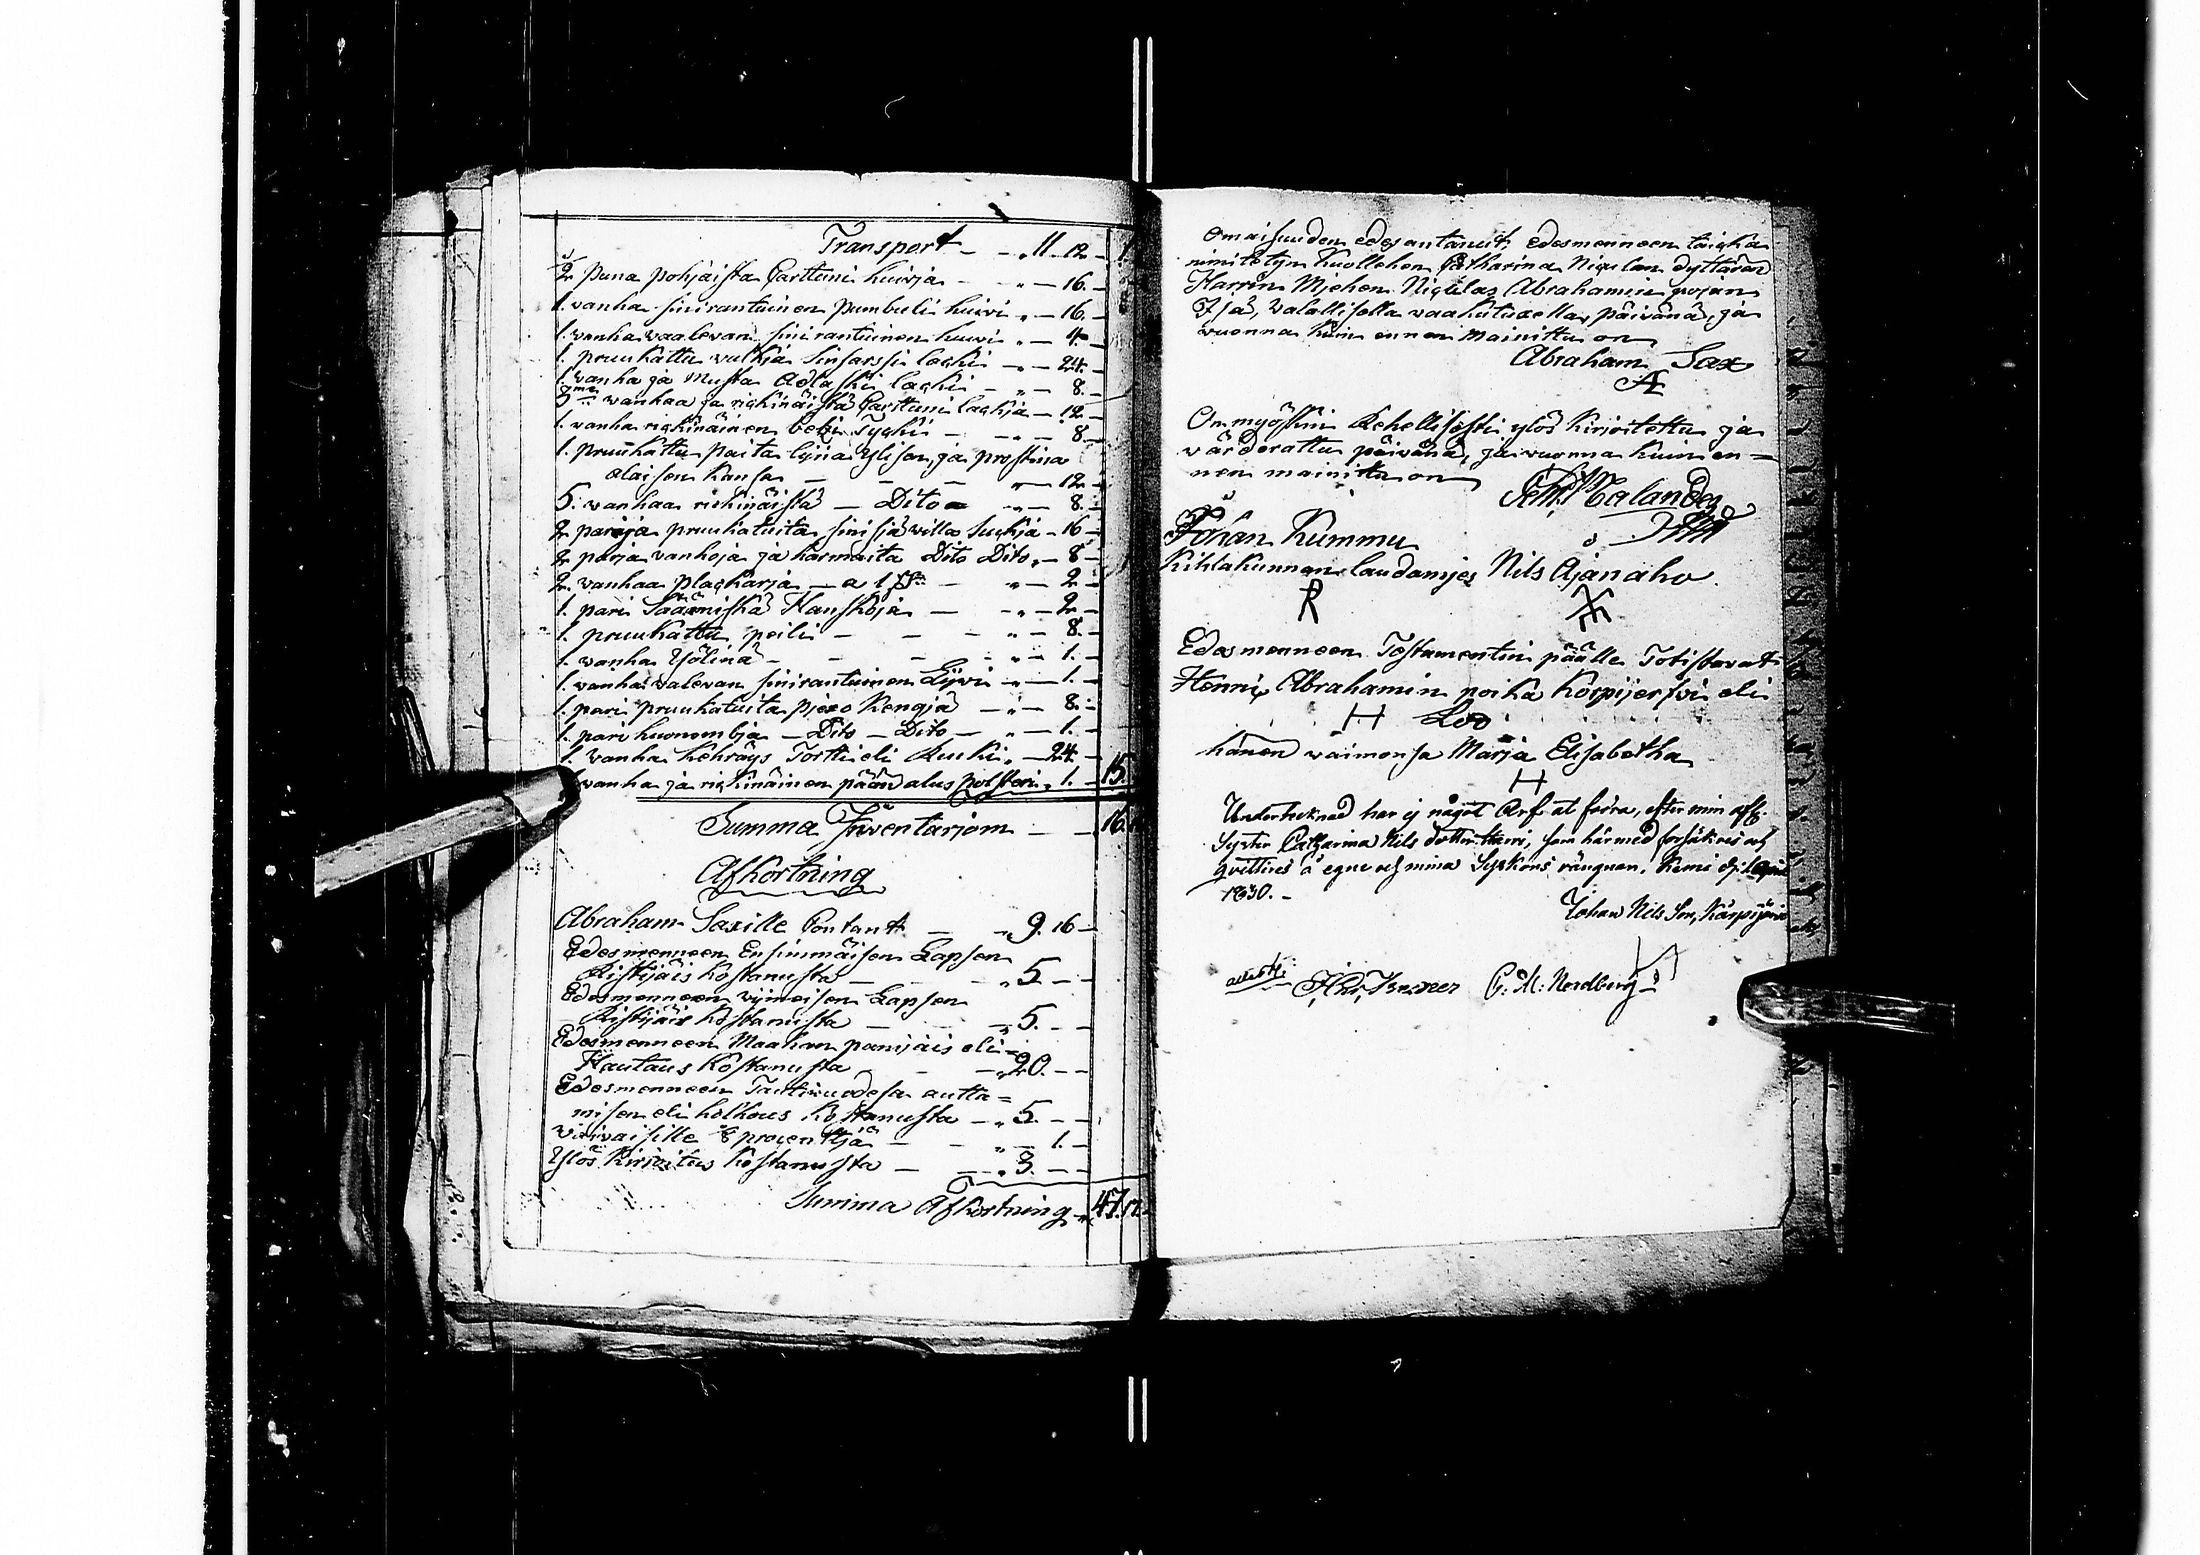 Transport - - „ 11. 12 -
2 puna pohjaista Carttuni huivja - - „ - 16. -
1. vanha sinirantuinen pumbuli huivi „ - 16. -
1. vanha vaalevan sinirantuinen huivi „ - 4. -
1. pruukattu valkia lackki „ - 24. -
1. vanha ja Musta Adlaski lackki - „ - 8. -
3 vanhaa ja rickinäistä Carttuni lackja - 12. -
1. vanha rickinäinen Tyckii - „ - 8. -
1. pruukattu paita lijna ylisen ja prostina
alaisen kansa - - - „ - 12. -
5. vanhaa rickinäistä - Dito - „ - 8. -
2 parja pruukatuita sinisjä villa suckja - 16 -
2 parja vanhoja ja harmaita Dito Dito „ - 8 -
2. vanhaa plackarja - a 1 - „ - 2 -
1. pari Säämiskä Hanskoja - „ - 2 -
1. pruukattu peili - - - „ - 8. -
1. vanha Yölinä - - - - „ - 1. -
1. vanha valevan sinirantuinen Lijvi „ - 1. -
1. pari pruukatuita pjexo Kengjä - „ - 8. -
1. pari huonombja - Dito - Dito - „ - 1. -
1. vanha kehräys Tortti eli Rucki „ - 24. -
vanha ja rickinäinen päänd alus polsteri „ 1. - 15.
Summa Inventarjom - - 16.
Afkortning
Abraham Saxille Contant - „ 9. 16 -
Edesmenneen Ensinmäisen Lapsen
Ristijäis kostanusta - - „ 5. - -
Edesmenneen vijmeisen Lapsen
Ristijäis kostanusta - - „ 5. - -
Edesmenneen Maahan panijais eli
Hautaus kostanusta - „ 20. - -
Edesmenneen Tautivuodesa autta=
misen eli holhous kostanusta - „ 5. - -
vaivaisille procenttjä - - „ - 1. -
Ylös kirjoitus kostanusta - - „ 3. - -
Summa Afkortning „ 47. 17.
Omaisuuden edesantanut, edesmenneen taicka
nimitetyn kuollehen Catharina Niculan dyttären
Harrin Mjehen Niculas Abrahamin pojan
Isä, valallisella vaakutuxella, päivänä, ja
vuonna kuin ennen mainittu on
Abraham Sax
Æ
On myöskin Rehellisesti ylös kirjoitettu ja
värderattu päivänä, ja vuonna kuin en=
nen mainittu on
Calander
Johan Kummu
Kihlakunnan laudamjes Nils Ajanaho.
Edesmenneen Testamentin päälle Totistavat
Henric Abrahamin poika Korpijerfvi eli
H Loo
hänen vaimonsa Marja Elisabetha
H
Undertecknad har ej något Arf at fodra, efter min afl.
Syster Catharina Nils dotter Harri, som härmed försäkras och
qvitteras å egne och mina Syskons vägnar. Kemi d. 1 April
1830. -
Johan Nils Son, Karpijärvi
C. M. Nordberg